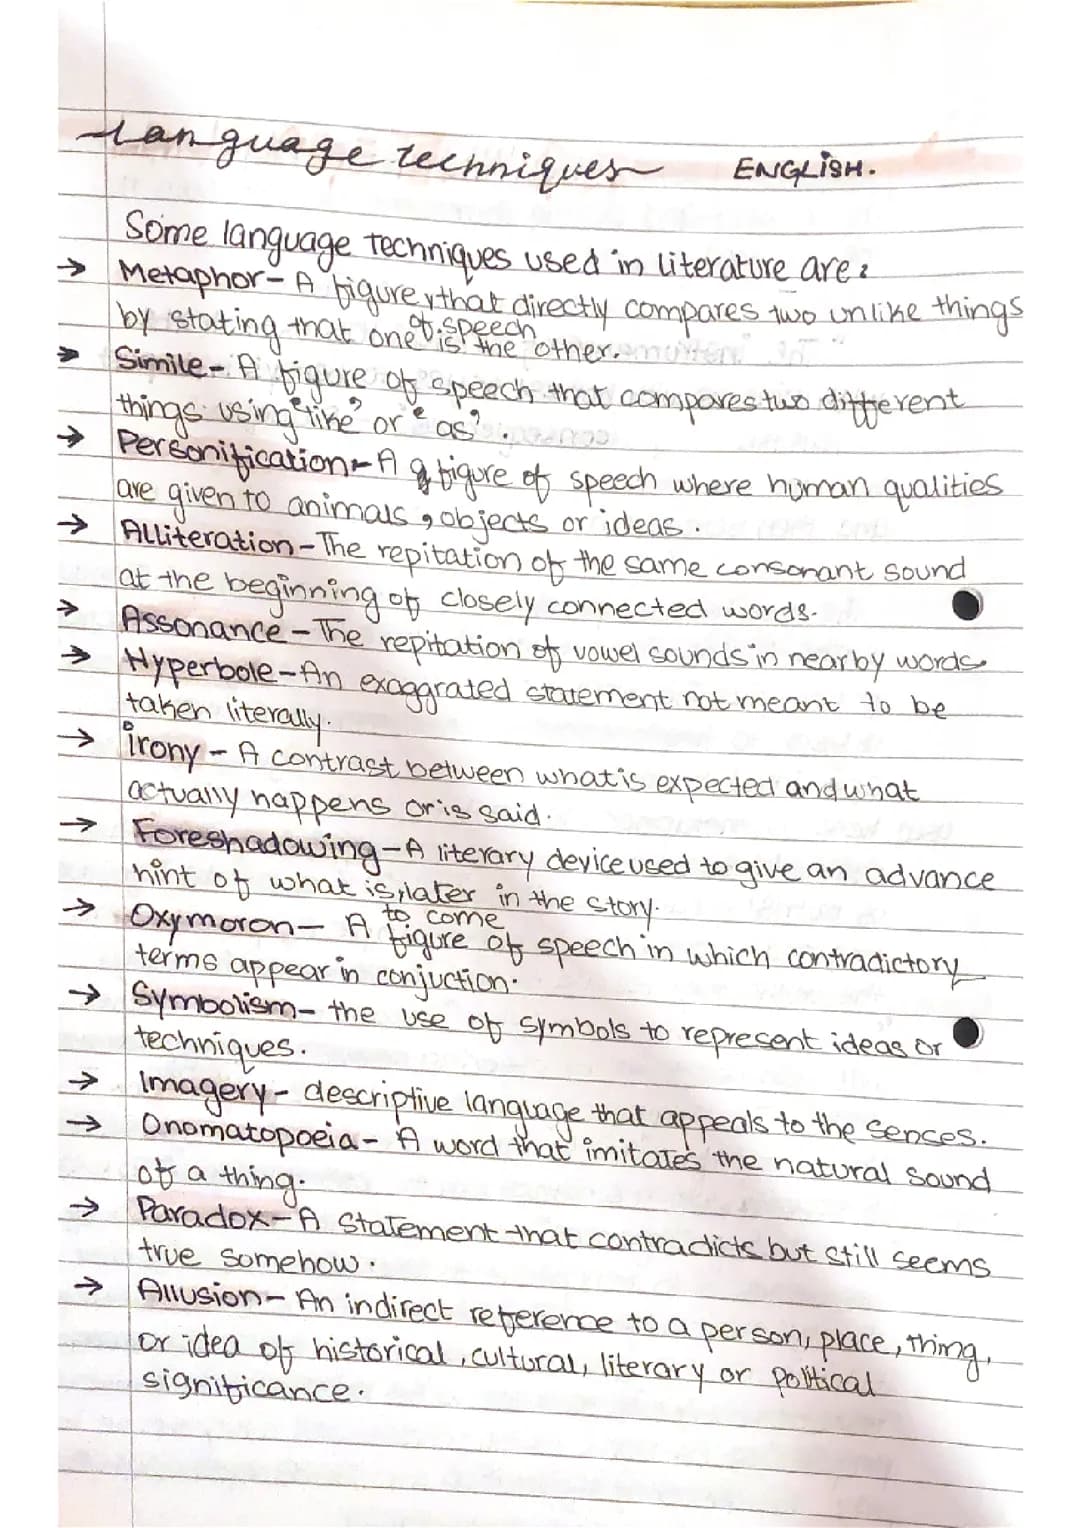 Language techniques ENGLISH.
Some language techniques used in literature are:
→ Metaphor- A figure of speech that directly compares two unlike things
by stating that one is the other.
→ Simile- A figure of speech that compares two different
things using "like" or "as".
→ Personification- A figure of speech where human qualities
are given to animals, objects or ideas.
→ Alliteration- The repitation of the same consonant sound
at the beginning of closely connected words.
→ Assonance- The repitation of vowel sounds in nearby words
→ Hyperbole- An exaggrated statement not meant to be
taken literally.
→ irony - A contrast between what is expected and what
actually happens or is said.
→ Foreshadowing- A literary device used to give an advance
hint of what is to come later in the story.
→ Oxymoron- A figure of speech in which contradictory
terms appear in conjuction.
→ Symbolism- the use of symbols to represent ideas or
techniques.
→ Imagery- descriptive language that appeals to the senses.
→ Onomatopoeia- A word that imitates the natural sound
of a thing.
→ Paradox- A statement that contradicts but still seems
true somehow.
→ Allusion- An indirect reference to a person, place, thing,
or idea of historical, cultural, literary or political
significance.